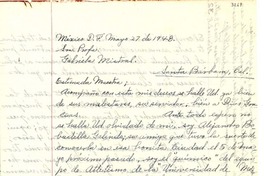 México D.F. Mayo 27 de 1948.
Sra. Profa.
Gabriela Mistral.
Santa Bárbara, Cal.
Estimada Maestra;
Acompaño con esta mis deseos se halle Ud. ya bien
de sus malestares, su servidor, bien a Dios
Ante todo espero no
se halle Ud olvidado de mi, soy Alejandro
Galindo, su amigo que tuvo la suerte de
conocerla en esa bonita Ciudad el 5 de mayo
próximo pasado, soy el químico del equi-
po de Atletismo de la Universidad de